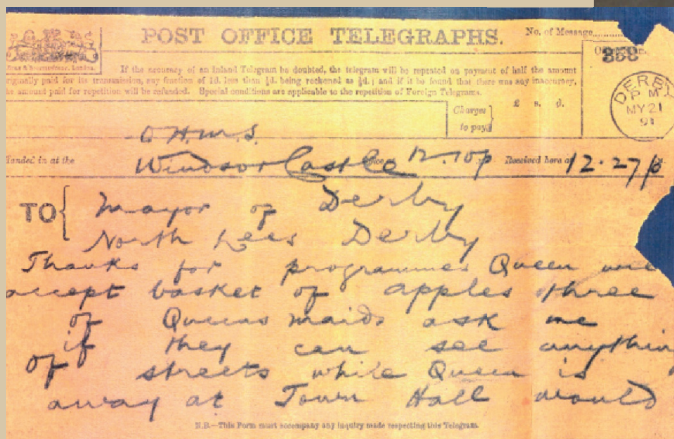 POST OFFICE TELEGRAPHS.
No. of Message
If the accuracy of an Inland Telegram be doubted, the telegram will be repeated on payment of half the amount
originally paid for its transmission, any fraction of 1d. less than ½d. being reckoned as ½d.; and if it be found that there was any inaccuracy,
the amount paid for repetition will be refunded. Special conditions are applicable to the repetition of Foreign Telegrams.
358
Charges to pay
£ s. d.
DERBY
PM
MY 21
91
O.H.M.S.
Handed in at the Windsor Castle 12.10p Received here at 12.27p
TO Mayor of Derby
North Lees Derby
Thanks for programmes Queen will
accept basket of apples three
of Queens maids ask me
if they can see anything
of streets while Queen is
away at Town Hall would
N.B.—This Form must accompany any inquiry made respecting this Telegram.